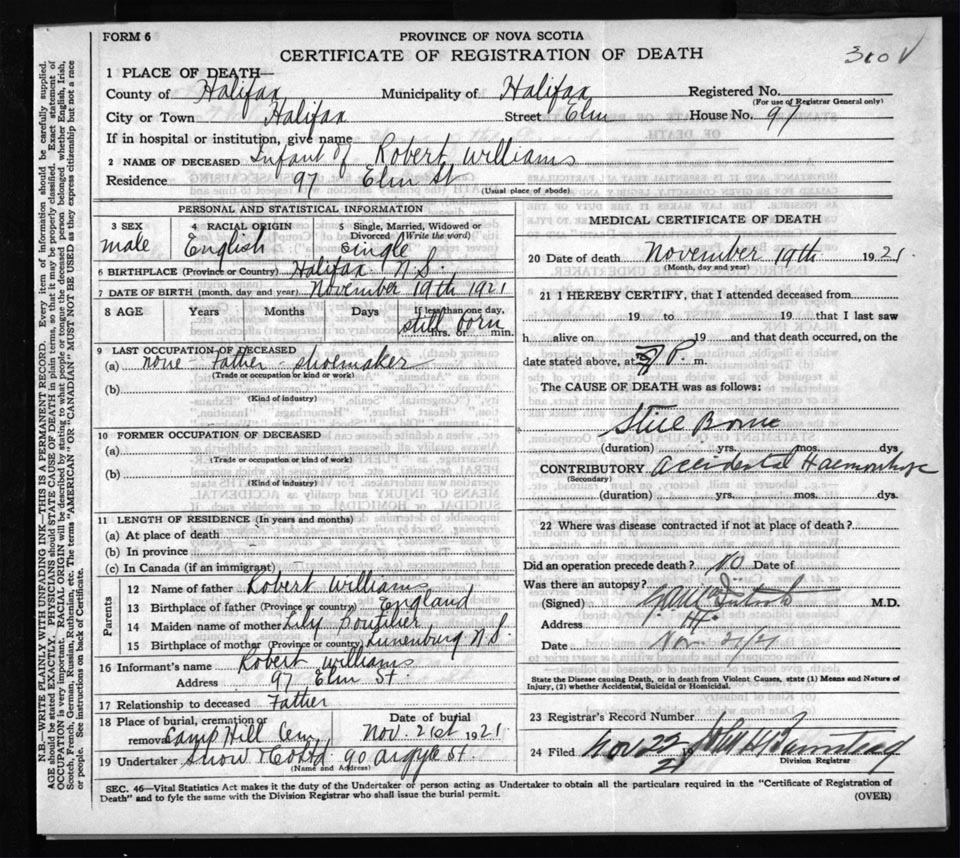 FORM 6
PROVINCE OF NOVA SCOTIA
CERTIFICATE OF REGISTRATION OF DEATH
310 V
1 PLACE OF DEATH—
County of Halifax Municipality of Halifax Registered No.
(For use of Registrar General only)
City or Town Halifax Street Elm House No. 97
If in hospital or institution, give name
2 NAME OF DECEASED Infant of Robert Williams
Residence 97 Elm St
(Usual place of abode)
PERSONAL AND STATISTICAL INFORMATION
3 SEX 4 RACIAL ORIGIN 5 Single, Married, Widowed or Divorced (Write the word)
male English single
6 BIRTHPLACE (Province or Country) Halifax N.S.
7 DATE OF BIRTH (month, day and year) November 19th 1921
8 AGE Years Months Days If less than one day,
still born
hrs. or min.
9 LAST OCCUPATION OF DECEASED
(a) none Father shoemaker
(Trade or occupation or kind or work)
(b)
(Kind of industry)
10 FORMER OCCUPATION OF DECEASED
(a)
(Trade or occupation or kind of work)
(b)
(Kind of industry)
11 LENGTH OF RESIDENCE (In years and months)
(a) At place of death
(b) In province
(c) In Canada (if an immigrant)
Parents
12 Name of father Robert Williams
13 Birthplace of father (Province or country) England
14 Maiden name of mother Lily Boutilier
15 Birthplace of mother (Province or country) Lunenburg N.S.
16 Informant's name Robert Williams
Address 97 Elm St.
17 Relationship to deceased Father
18 Place of burial, cremation or removal Camp Hill Cem. Date of burial Nov. 21st 1921
19 Undertaker Snow & Co Ltd 90 Argyle St.
(Name and Address)
MEDICAL CERTIFICATE OF DEATH
20 Date of death November 19th 1921.
(Month, day and year)
21 I HEREBY CERTIFY, that I attended deceased from
19 to 19 that I last saw
h alive on 19 and that death occurred, on the
date stated above, at P. m.
The CAUSE OF DEATH was as follows:
Still Borne
(duration) yrs. mos. dys
CONTRIBUTORY Accidental Haemorrhage
(Secondary)
(duration) yrs. mos. dys.
22 Where was disease contracted if not at place of death?
Did an operation precede death? No Date of
Was there an autopsy?
(Signed) M.D.
Address
Date Nov 21/21
State the Disease causing Death, or in death from Violent Causes, state (1) Means and Nature of
Injury, (2) whether Accidental, Suicidal or Homicidal.
23 Registrar's Record Number
24 Filed Nov 22 19 21
Division Registrar
SEC. 46—Vital Statistics Act makes it the duty of the Undertaker or person acting as Undertaker to obtain all the particulars required in the "Certificate of Registration of
Death" and to fyle the same with the Division Registrar who shall issue the burial permit.
(OVER)
N.B.—WRITE PLAINLY WITH UNFADING INK—THIS IS A PERMANENT RECORD. Every item of information should be carefully supplied.
AGE should be stated EXACTLY. PHYSICIANS should STATE CAUSE OF DEATH in plain terms, so that it may be properly classified. Exact statement of
OCCUPATION is very important. RACIAL ORIGIN will be described by stating to what people or tongue the deceased person belonged whether English, Irish,
Scotch, French, German, Russian, Ruthenian, etc. The terms "AMERICAN" OR "CANADIAN" MUST NOT BE USED as they express citizenship but not a race
or people. See instructions on back of Certificate.